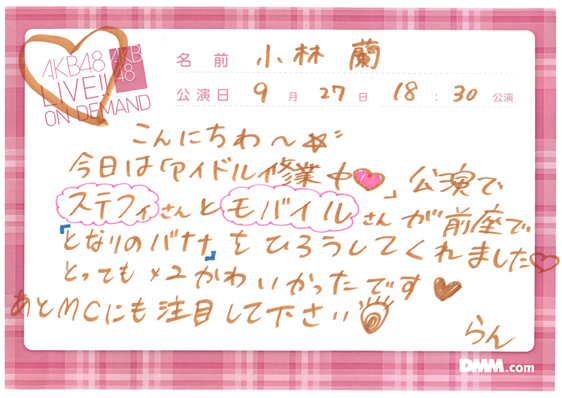 AKB48
LIVE!!
ON DEMAND
AKB
48
名前 小林 蘭
公演日 9月27日 18:30 公演
こんにちわ〜☆
今日は「アイドル修業中♥」公演で
ステフィさんとモバイルさんが前座で
『となりのバナナ』をひろうしてくれました♡
とっても×2かわいかったです♥
あとMCにも注目して下さい
らん
DMM.com